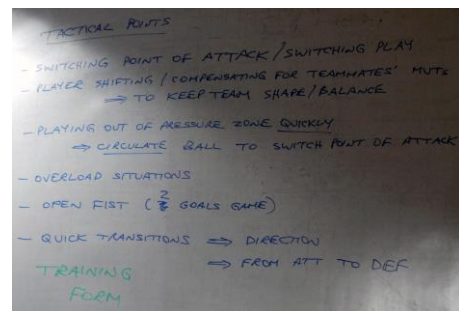 TACTICAL POINTS
- SWITCHING POINT OF ATTACK/SWITCHING PLAY
- PLAYER SHIFTING/COMPENSATING FOR TEAMMATES' MVTS
⇒ TO KEEP TEAM SHAPE/BALANCE
- PLAYING OUT OF PRESSURE ZONE QUICKLY
⇒ CIRCULATE BALL TO SWITCH POINT OF ATTACK
- OVERLOAD SITUATIONS
- OPEN FIST (2 GOALS GAME)
- QUICK TRANSITIONS ⇒ DIRECTION
⇒ FROM ATT TO DEF
TRAINING
FORM